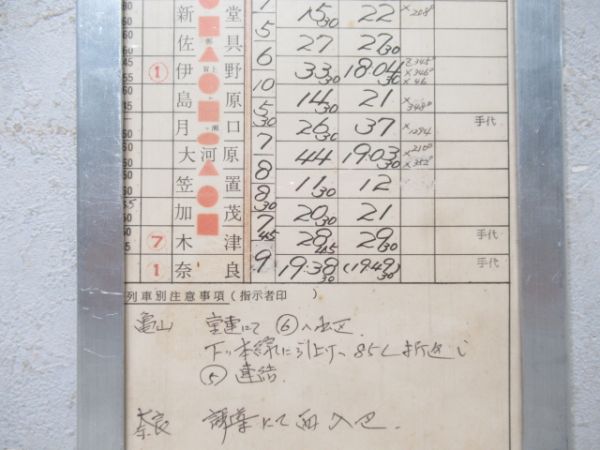 新堂 15 30 22 ×208ᴰ
5
佐 那 具 27 27 30
6
① 伊 賀 上 野 33 30 18 04 30 2345ᴰ ×346ᴰ ×46
10
島 ケ 原 14 30 21 ×348ᴰ
5 30
月 ケ 瀬 口 26 30 37 ×1294 手代
7
大 河 原 44 19 03 30 ×210ᴰ ×352ᴰ
8
笠 置 11 30 12
8 30
加 茂 20 30 21
7 45
⑦ 木 津 28 45 29 30 手代
9
① 奈 良 19:38 30 (19:49) 30 手代
列車別注意事項(指示者印 )
亀山 ⑥入区.
下り本線に引上げ、85L折返し
⑤ 連結.
奈良 誘導にて 入区.